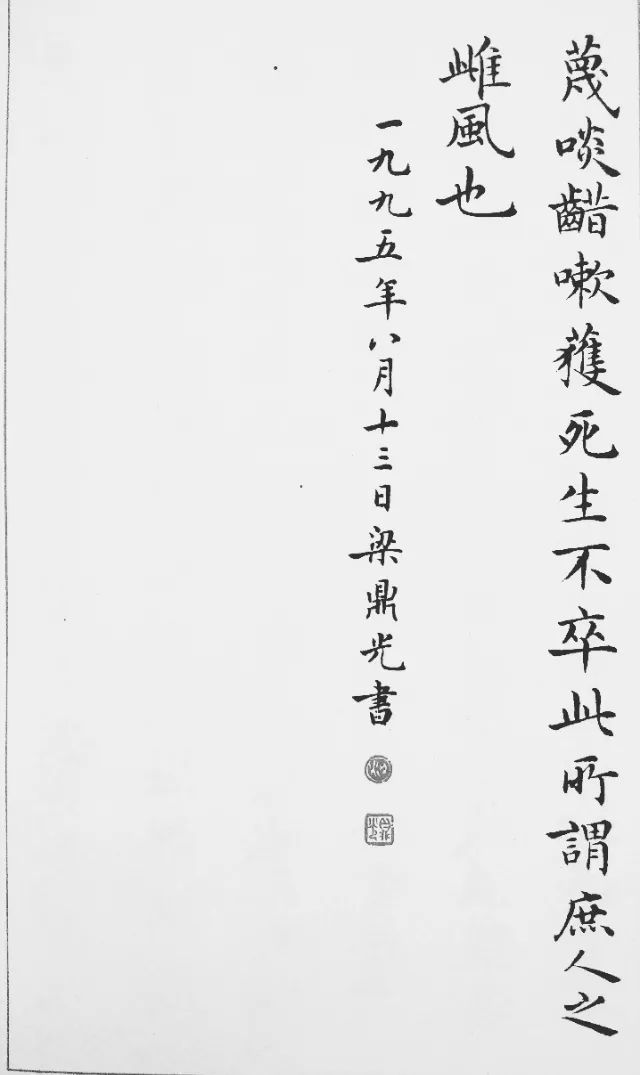 蔑啖齰嗽獲死生不卒此所謂庶人之
雌風也
一九九五年八月十三日梁鼎光書